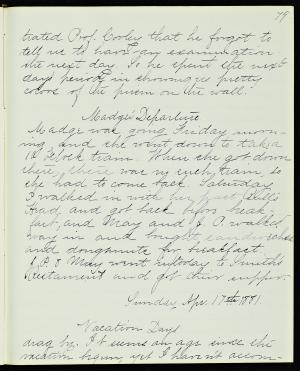 79
trated Prof. Cooley that he forgot to
tell us to have any examination
the next day. So he spent the next
days period in showing us pretty
colors of the prism on the wall.
Madge's Departure
Madge was going Friday morn-
ing and she went down to take a
10 o'clock train. When she got down
there, there was no such train, so
she had to come back. Saturday
I walked in with her past
Road, and got back before break-
fast, and May and A. P. walked
way in and bought
and doughnuts for breakfast
A. P. & May went today to Smith's
Restaurant and got their supper.
Sunday, Apr. 17th 1881.
Vacation Days
drag by. It seems an age since the
vacation begun, yet I haven't accom-